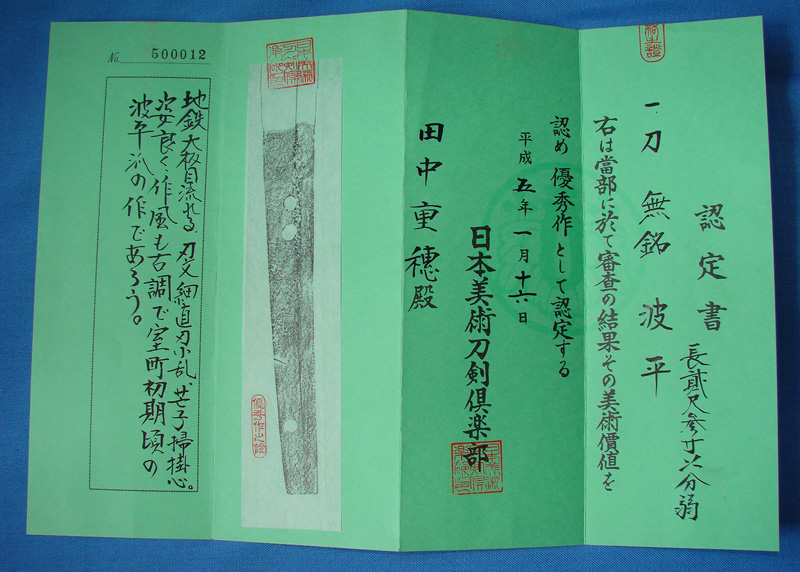 認定書
一刀 無銘 波平
長貳尺参寸六分弱
右は當部に於て審査の結果その美術價値を
認め 優秀作として認定する
平成五年一月十六日
日本美術刀剣倶楽部
田中重穂殿
優秀作之證
No. 500012
地鉄大板目流れる、刃文細直刃小乱、芒子掃掛心。
姿良く、作風も古調で室町初期頃の
波平派の作であろう。